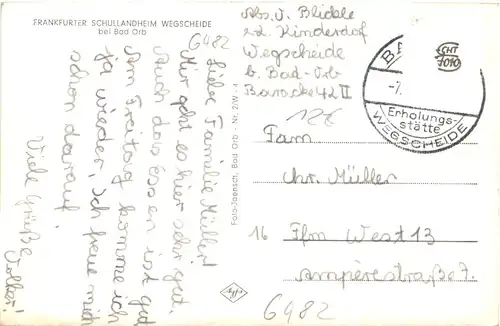 FRANKFURTER SCHULLANDHEIM WEGSCHEIDE
bei Bad Orb
6482
Liebe Familie Müller!
Mir geht es hier sehr gut.
Auch das Essen ist gut
Am Freitag komme ich
ja wieder, ich freue mich
schon darauf.
Viele Grüße
Volker!
Foto-Jaensch, Bad Orb · Nr. 2/W
Agfa
Abs. V.
z.Z. Kinderdorf
Wegscheide
b. Bad-Orb
Baracke 42 II
Erholungs-
stätte
WEGSCHEIDE
ECHT
FOTO
Fam
Chr. Müller
16 Ffm West 13
Ampèrestraße 7.
6482